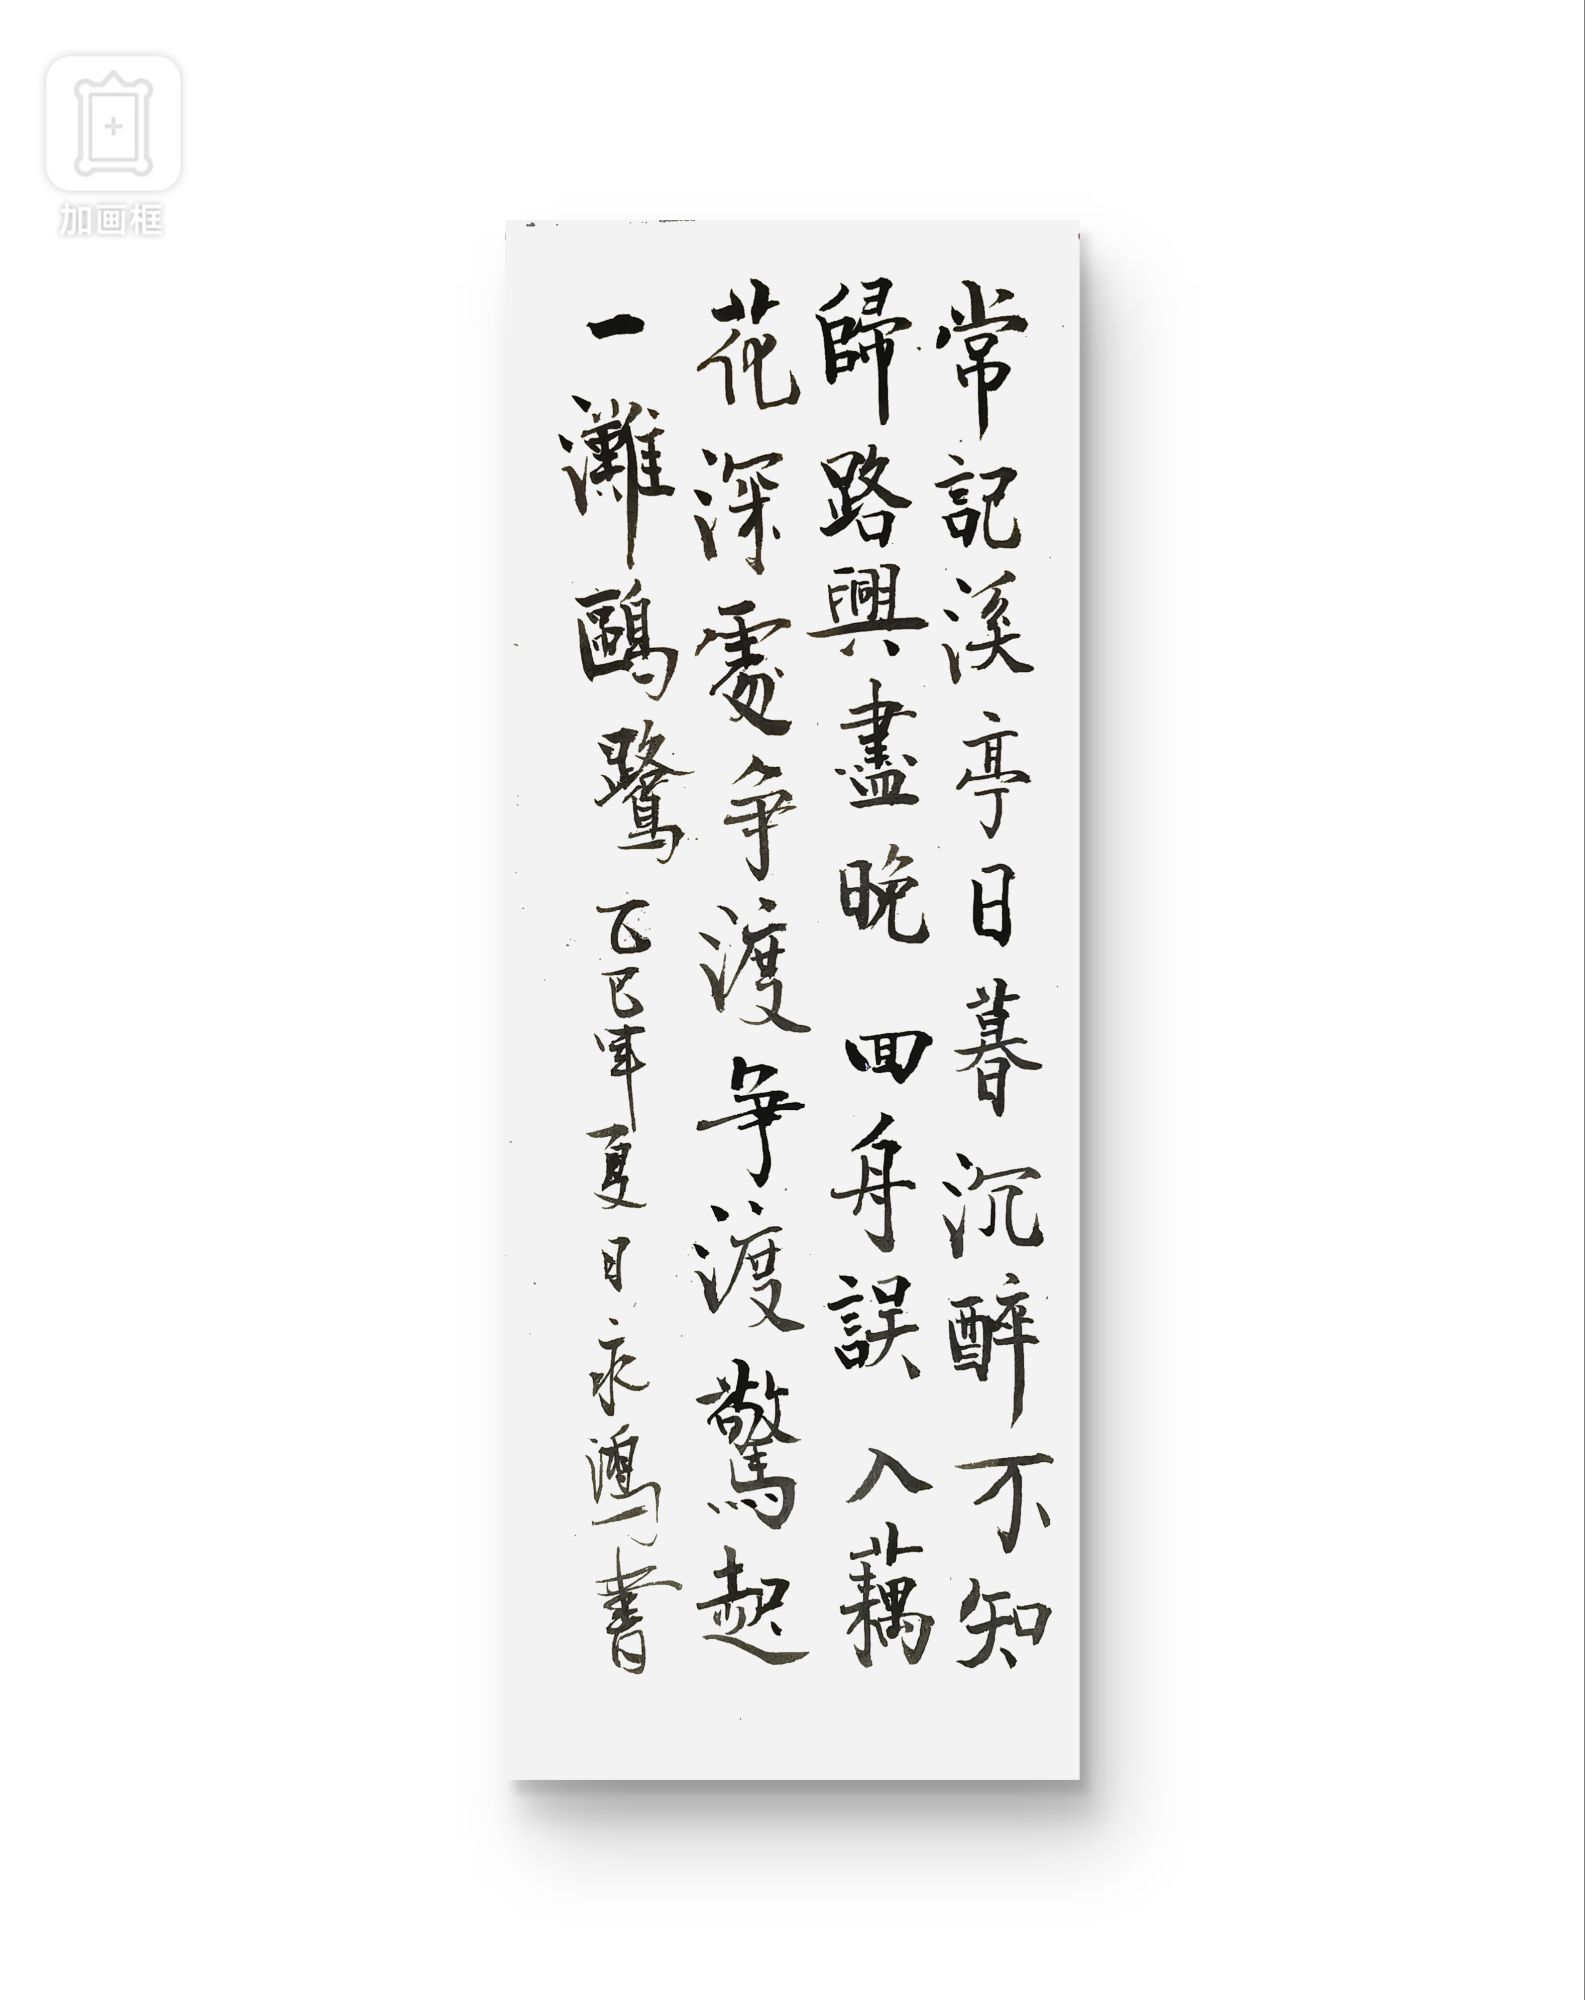 常記溪亭日暮沉醉不知
歸路興盡晚回舟誤入藕
花深處争渡争渡驚起
一灘鷗鷺 乙巳年夏日永鴻書
加画框